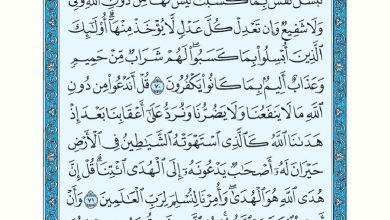 تُبْسَلَ نَفْسٌۢ بِمَا كَسَبَتْ لَيْسَ لَهَا مِن دُونِ ٱللَّهِ وَلِىٌّ
وَلَا شَفِيعٌ وَإِن تَعْدِلْ كُلَّ عَدْلٍ لَّا يُؤْخَذْ مِنْهَآ ۗ أُو۟لَٰٓئِكَ
ٱلَّذِينَ أُبْسِلُوا۟ بِمَا كَسَبُوا۟ ۖ لَهُمْ شَرَابٌ مِّنْ حَمِيمٍ
وَعَذَابٌ أَلِيمٌۢ بِمَا كَانُوا۟ يَكْفُرُونَ ٧٠ قُلْ أَنَدْعُوا۟ مِن دُونِ
ٱللَّهِ مَا لَا يَنفَعُنَا وَلَا يَضُرُّنَا وَنُرَدُّ عَلَىٰٓ أَعْقَابِنَا بَعْدَ إِذْ
هَدَىٰنَا ٱللَّهُ كَٱلَّذِى ٱسْتَهْوَتْهُ ٱلشَّيَٰطِينُ فِى ٱلْأَرْضِ
حَيْرَانَ لَهُۥٓ أَصْحَٰبٌ يَدْعُونَهُۥٓ إِلَى ٱلْهُدَى ٱئْتِنَا ۗ قُلْ إِنَّ
هُدَى ٱللَّهِ هُوَ ٱلْهُدَىٰ ۖ وَأُمِرْنَا لِنُسْلِمَ لِرَبِّ ٱلْعَٰلَمِينَ ٧١ وَأَنْ